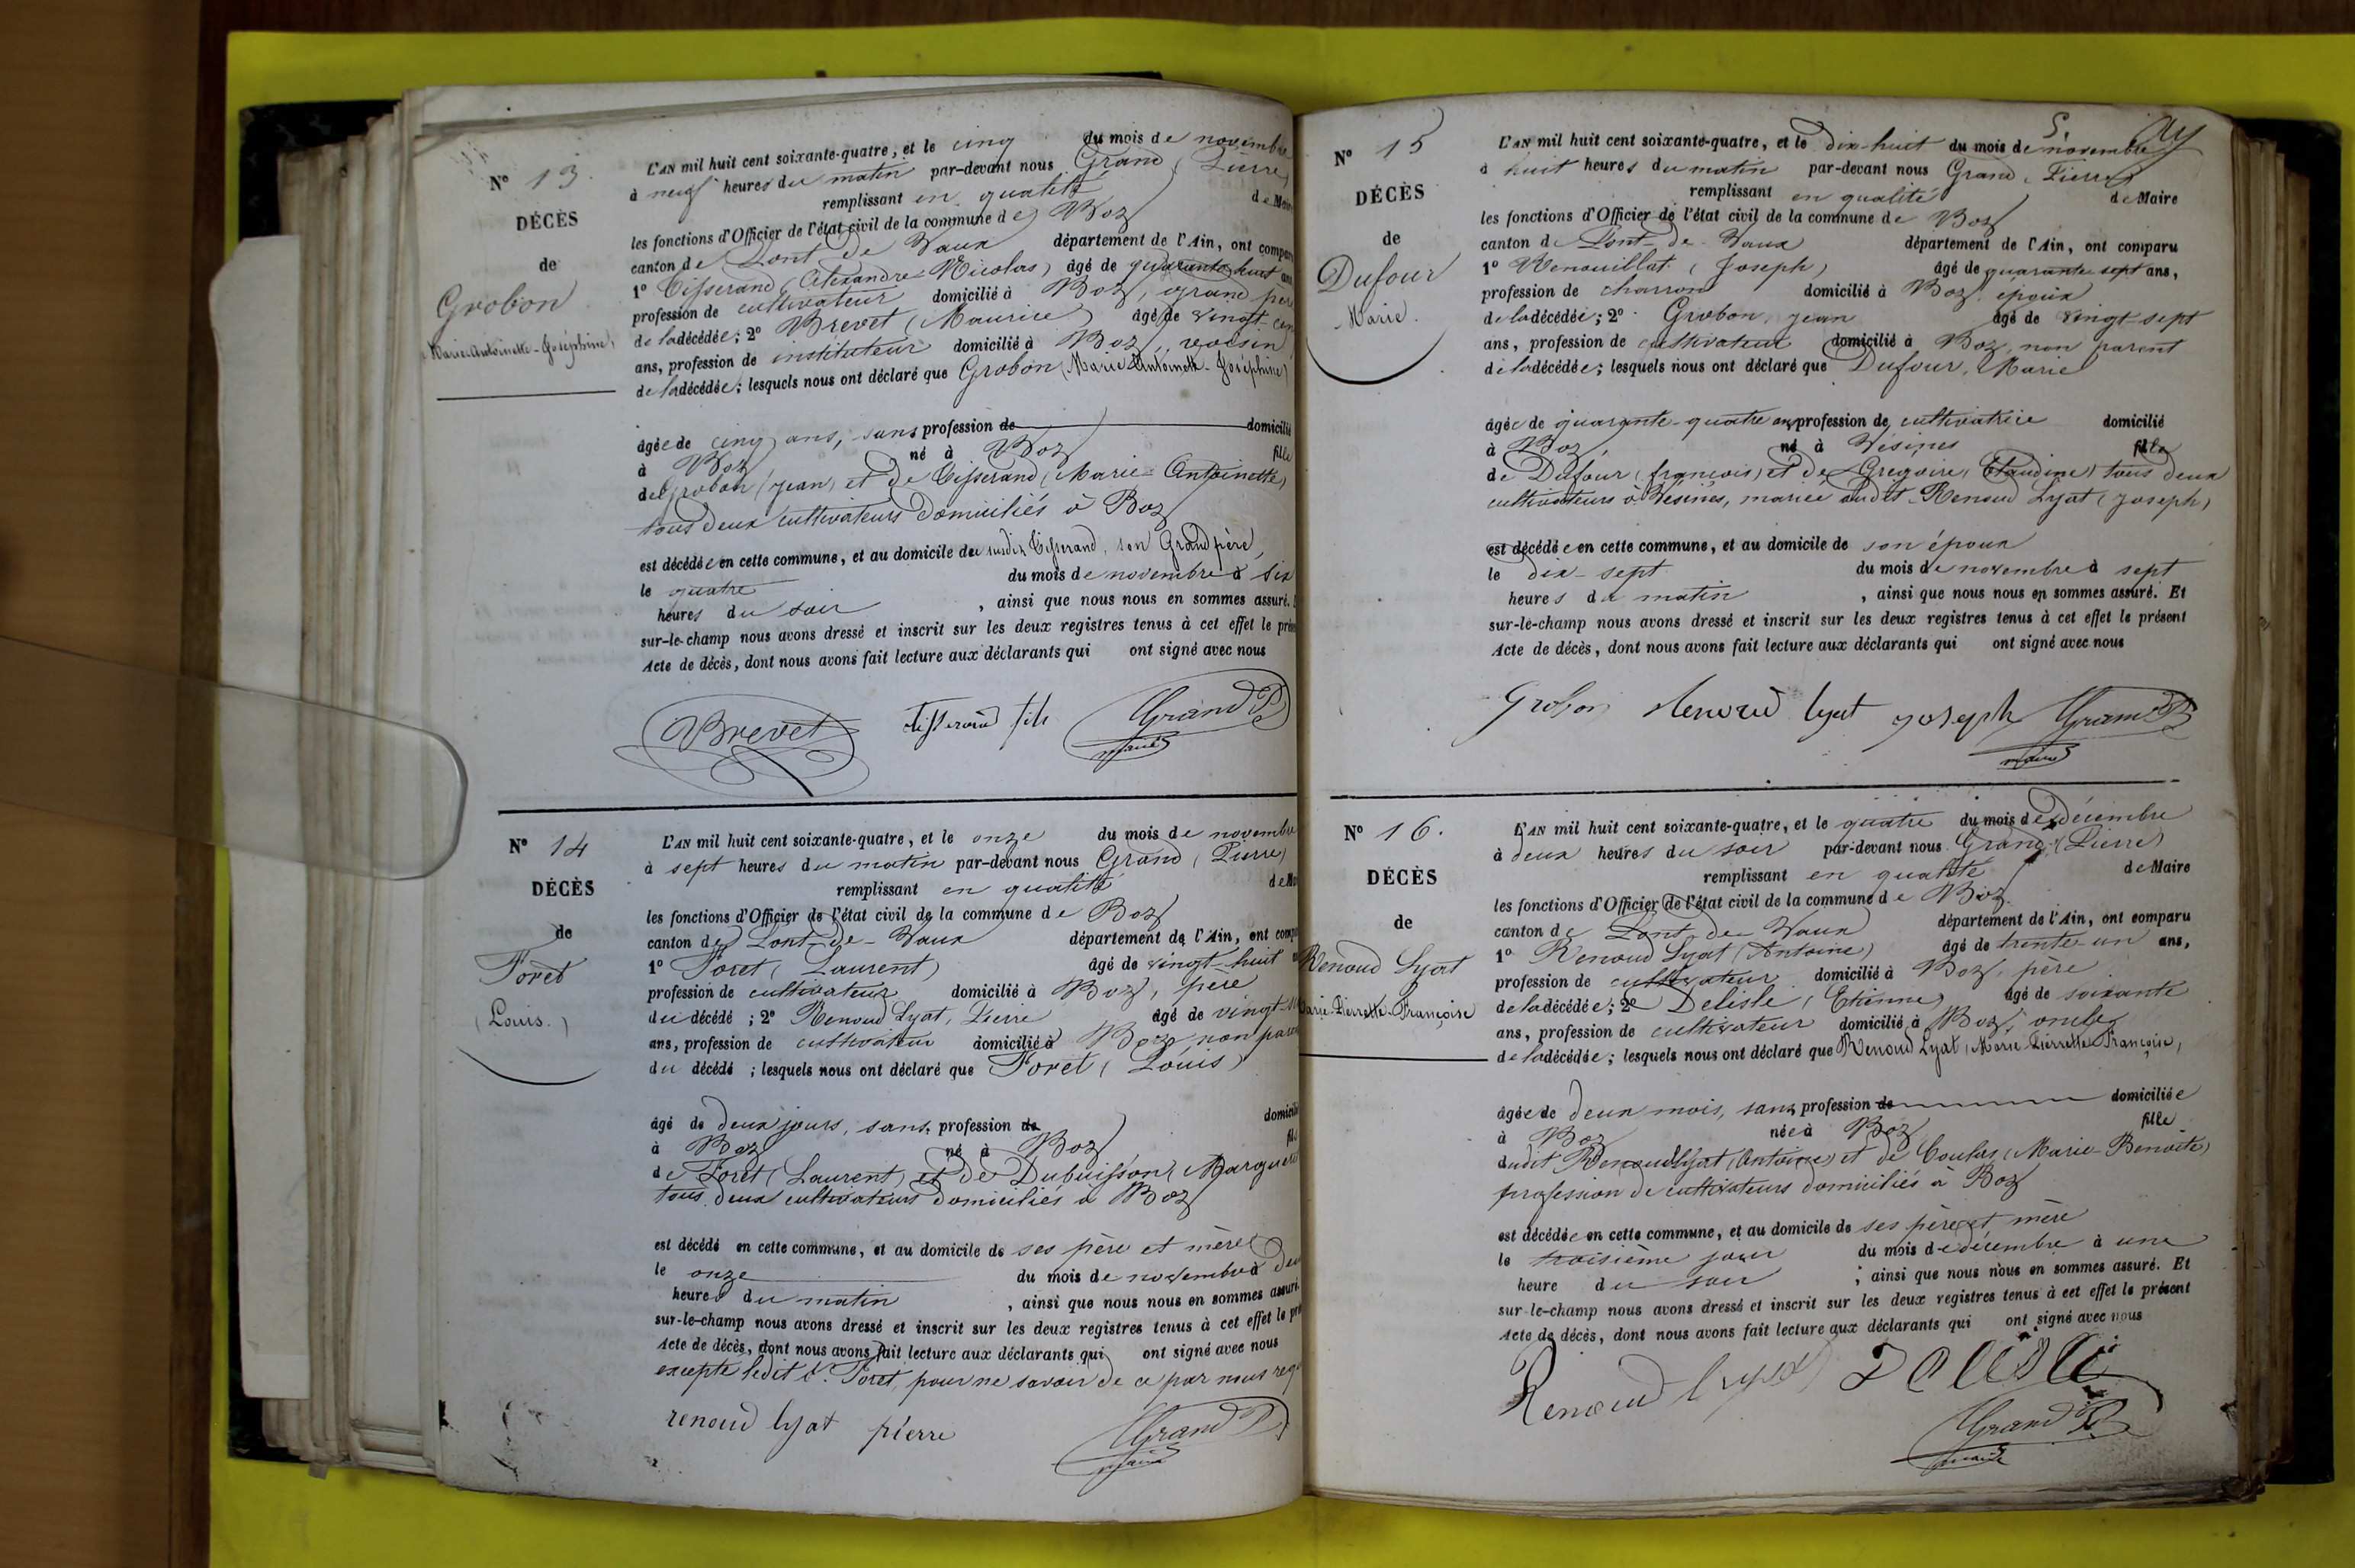 N° 13.
DÉCÈS
de
Grobon
(Marie-Antoinette-Joséphine)
L'AN mil huit cent soixante-quatre, et le cinq du mois de novembre
à neuf heures du matin par-devant nous Grand (Pierre)
remplissant en qualité de Maire
les fonctions d'Officier de l'état civil de la commune de Boz
canton de Pont de Vaux département de l'Ain, ont comparu
1° Tisserand (Alexandre-Nicolas) âgé de quarante huit ans
profession de cultivateur domicilié à Boz, grand père
de la décédée; 2° Brevet (Maurice) âgé de vingt-cinq
ans, profession de instituteur domicilié à Boz, voisin
de la décédée; lesquels nous ont déclaré que Grobon (Marie Antoinette-Joséphine)
âgée de cinq ans, sans profession de domicilié
à Boz né à Boz fille
de Grobon (Jean) et de Tisserand (Marie-Antoinette)
tous deux cultivateurs domiciliés à Boz
est décédée en cette commune, et au domicile du susdit Tisserand, son Grand père,
le quatre du mois de novembre à six
heures du soir, ainsi que nous nous en sommes assuré.
sur-le-champ nous avons dressé et inscrit sur les deux registres tenus à cet effet le présent
Acte de décès, dont nous avons fait lecture aux déclarants qui ont signé avec nous
Brevet Tisserand fils Grand P
maire
N° 14
DÉCÈS
de
Foret
(Louis.)
L'AN mil huit cent soixante-quatre, et le onze du mois de novembre
à sept heures du matin par-devant nous Grand (Pierre)
remplissant en qualité de Maire
les fonctions d'Officier de l'état civil de la commune de Boz
canton de Pont-de-Vaux département de l'Ain, ont comparu
1° Foret (Laurent) âgé de vingt-huit
profession de cultivateur domicilié à Boz, père
du décédé; 2° Renoud Lyat, Pierre âgé de vingt-
ans, profession de cultivateur domicilié à Boz, non parent
du décédé; lesquels nous ont déclaré que Foret (Louis)
âgé de deux jours, sans profession de domicilié
à Boz né à Boz fils
de Foret (Laurent) et de Dubuisson (Marguerite
tous deux cultivateurs domiciliés à Boz
est décédé en cette commune, et au domicile de ses père et mère
le onze du mois de novembre à deux
heures du matin, ainsi que nous nous en sommes assuré.
sur-le-champ nous avons dressé et inscrit sur les deux registres tenus à cet effet le pré
Acte de décès, dont nous avons fait lecture aux déclarants qui ont signé avec nous
excepté ledit Foret, pour ne savoir de ce par nous requis
renoud lyat pierre Grand P
maire
N° 15
DÉCÈS
de
Dufour
Marie.
L'AN mil huit cent soixante-quatre, et le dix-huit du mois de novembre
à huit heures du matin par-devant nous Grand, Pierre
remplissant en qualité de Maire
les fonctions d'Officier de l'état civil de la commune de Boz
canton de Pont-de-Vaux département de l'Ain, ont comparu
1° Renouillat (Joseph) âgé de quarante-sept ans,
profession de charron domicilié à Boz, époux
de la décédée; 2° Grobon, Jean âgé de vingt-sept
ans, profession de cultivateur domicilié à Boz, non parent
de la décédée; lesquels nous ont déclaré que Dufour, Marie
âgée de quarante-quatre ans, profession de cultivatrice domicilié
à Boz né à Vésines fille
de Dufour (françois) et de Gregoire (Claudine) tous deux
cultivateurs à Vésines, mariée audit Renoud Lyat (Joseph)
est décédée en cette commune, et au domicile de son époux
le dix-sept du mois de novembre à sept
heures du matin, ainsi que nous nous en sommes assuré. Et
sur-le-champ nous avons dressé et inscrit sur les deux registres tenus à cet effet le présent
Acte de décès, dont nous avons fait lecture aux déclarants qui ont signé avec nous
Grobon Renoud lyat joseph Grand P
maire
N° 16.
DÉCÈS
de
Renoud Lyat
Marie-Pierrette-Françoise
L'AN mil huit cent soixante-quatre, et le quatre du mois de décembre
à deux heures du soir par-devant nous Grand (Pierre)
remplissant en qualité de Maire
les fonctions d'Officier de l'état civil de la commune de Boz
canton de Pont-de-Vaux département de l'Ain, ont comparu
1° Renoud Lyat (Antoine) âgé de trente-un ans,
profession de cultivateur domicilié à Boz, père
de la décédée; 2° Delisle (Etienne) âgé de soixante
ans, profession de cultivateur domicilié à Boz, oncle
de la décédée; lesquels nous ont déclaré que Renoud Lyat (Marie Pierrette Françoise)
âgée de deux mois, sans profession de domiciliée
à Boz née à Boz fille
dudit Renoud Lyat (Antoine) et de Coulas (Marie-Benoite)
profession de cultivateurs domiciliés à Boz
est décédée en cette commune, et au domicile de ses père et mère
le troisième jour du mois de décembre à une
heure du soir, ainsi que nous nous en sommes assuré. Et
sur-le-champ nous avons dressé et inscrit sur les deux registres tenus à cet effet le présent
Acte de décès, dont nous avons fait lecture aux déclarants qui ont signé avec nous
Renoud lyat Delisle
Grand P
maire